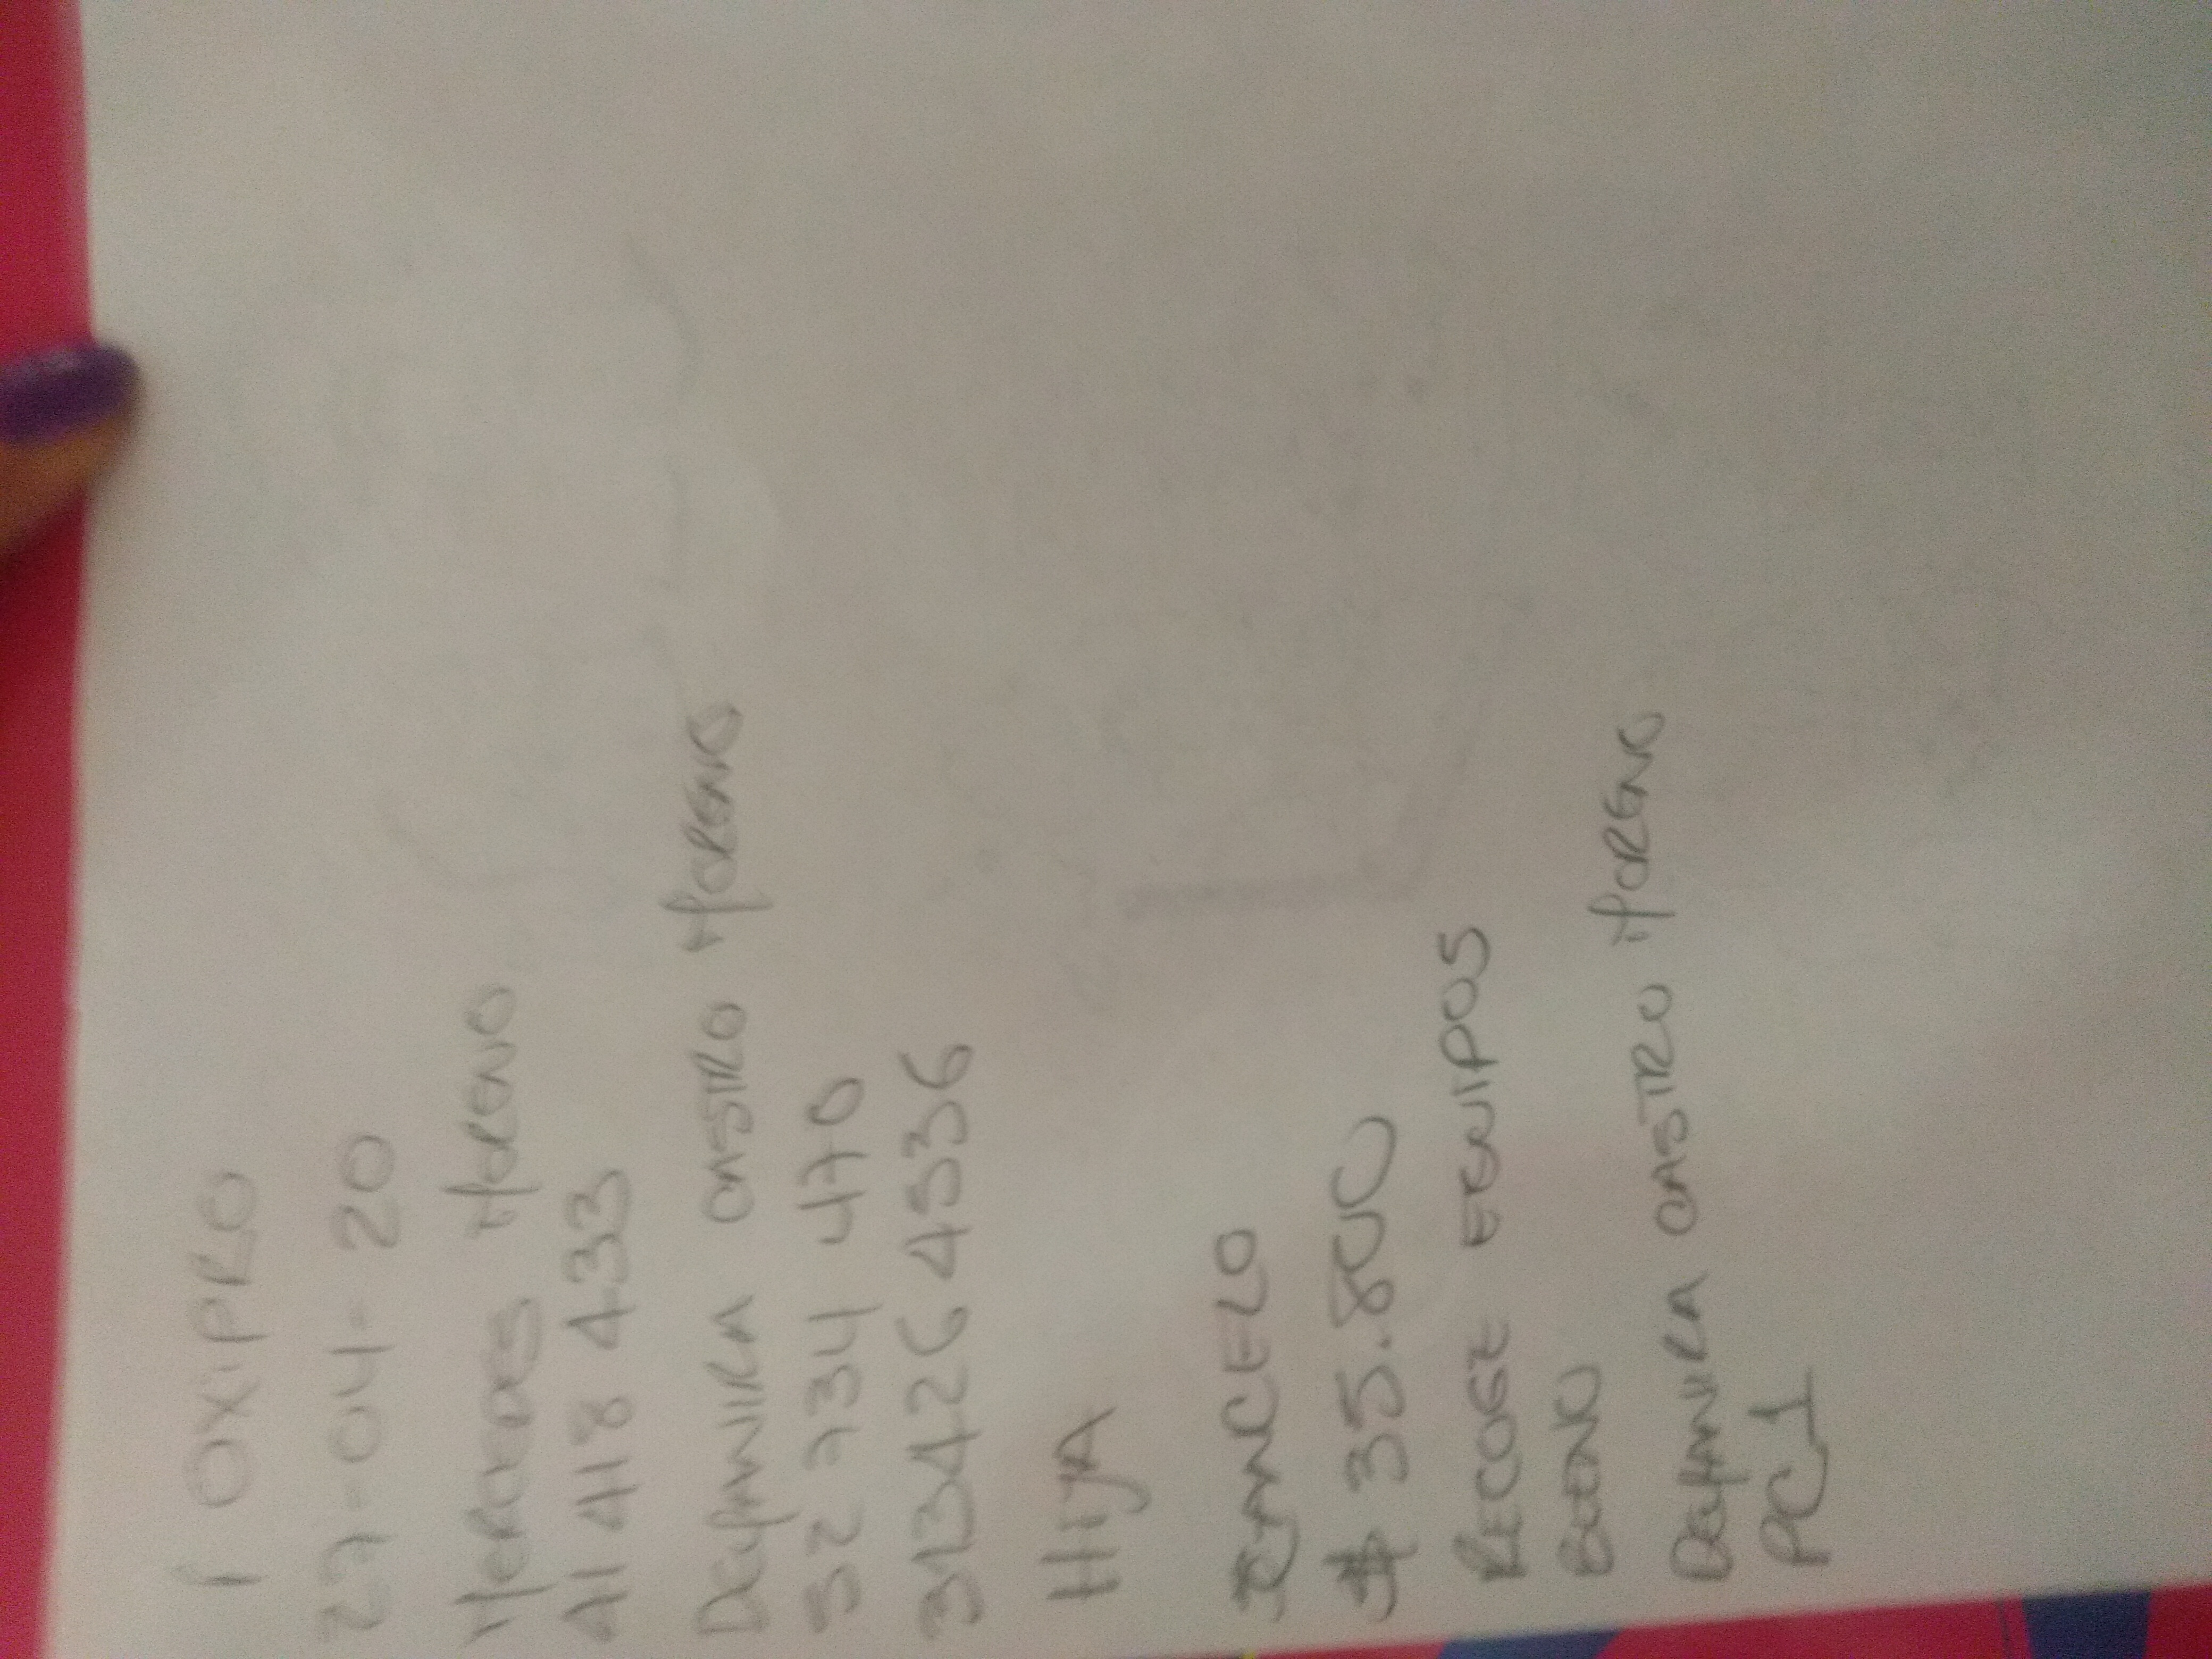 1 OXIPRO
27-04-20
MERCEDES MORENO
41 418 433
DEYANIRA CASTRO MORENO
52 734 470
313426 4536
HIJA
CANCELO
$ 35.800
RECOGE EQUIPOS
BUENO
DEYANIRA CASTRO MORENO
PC1